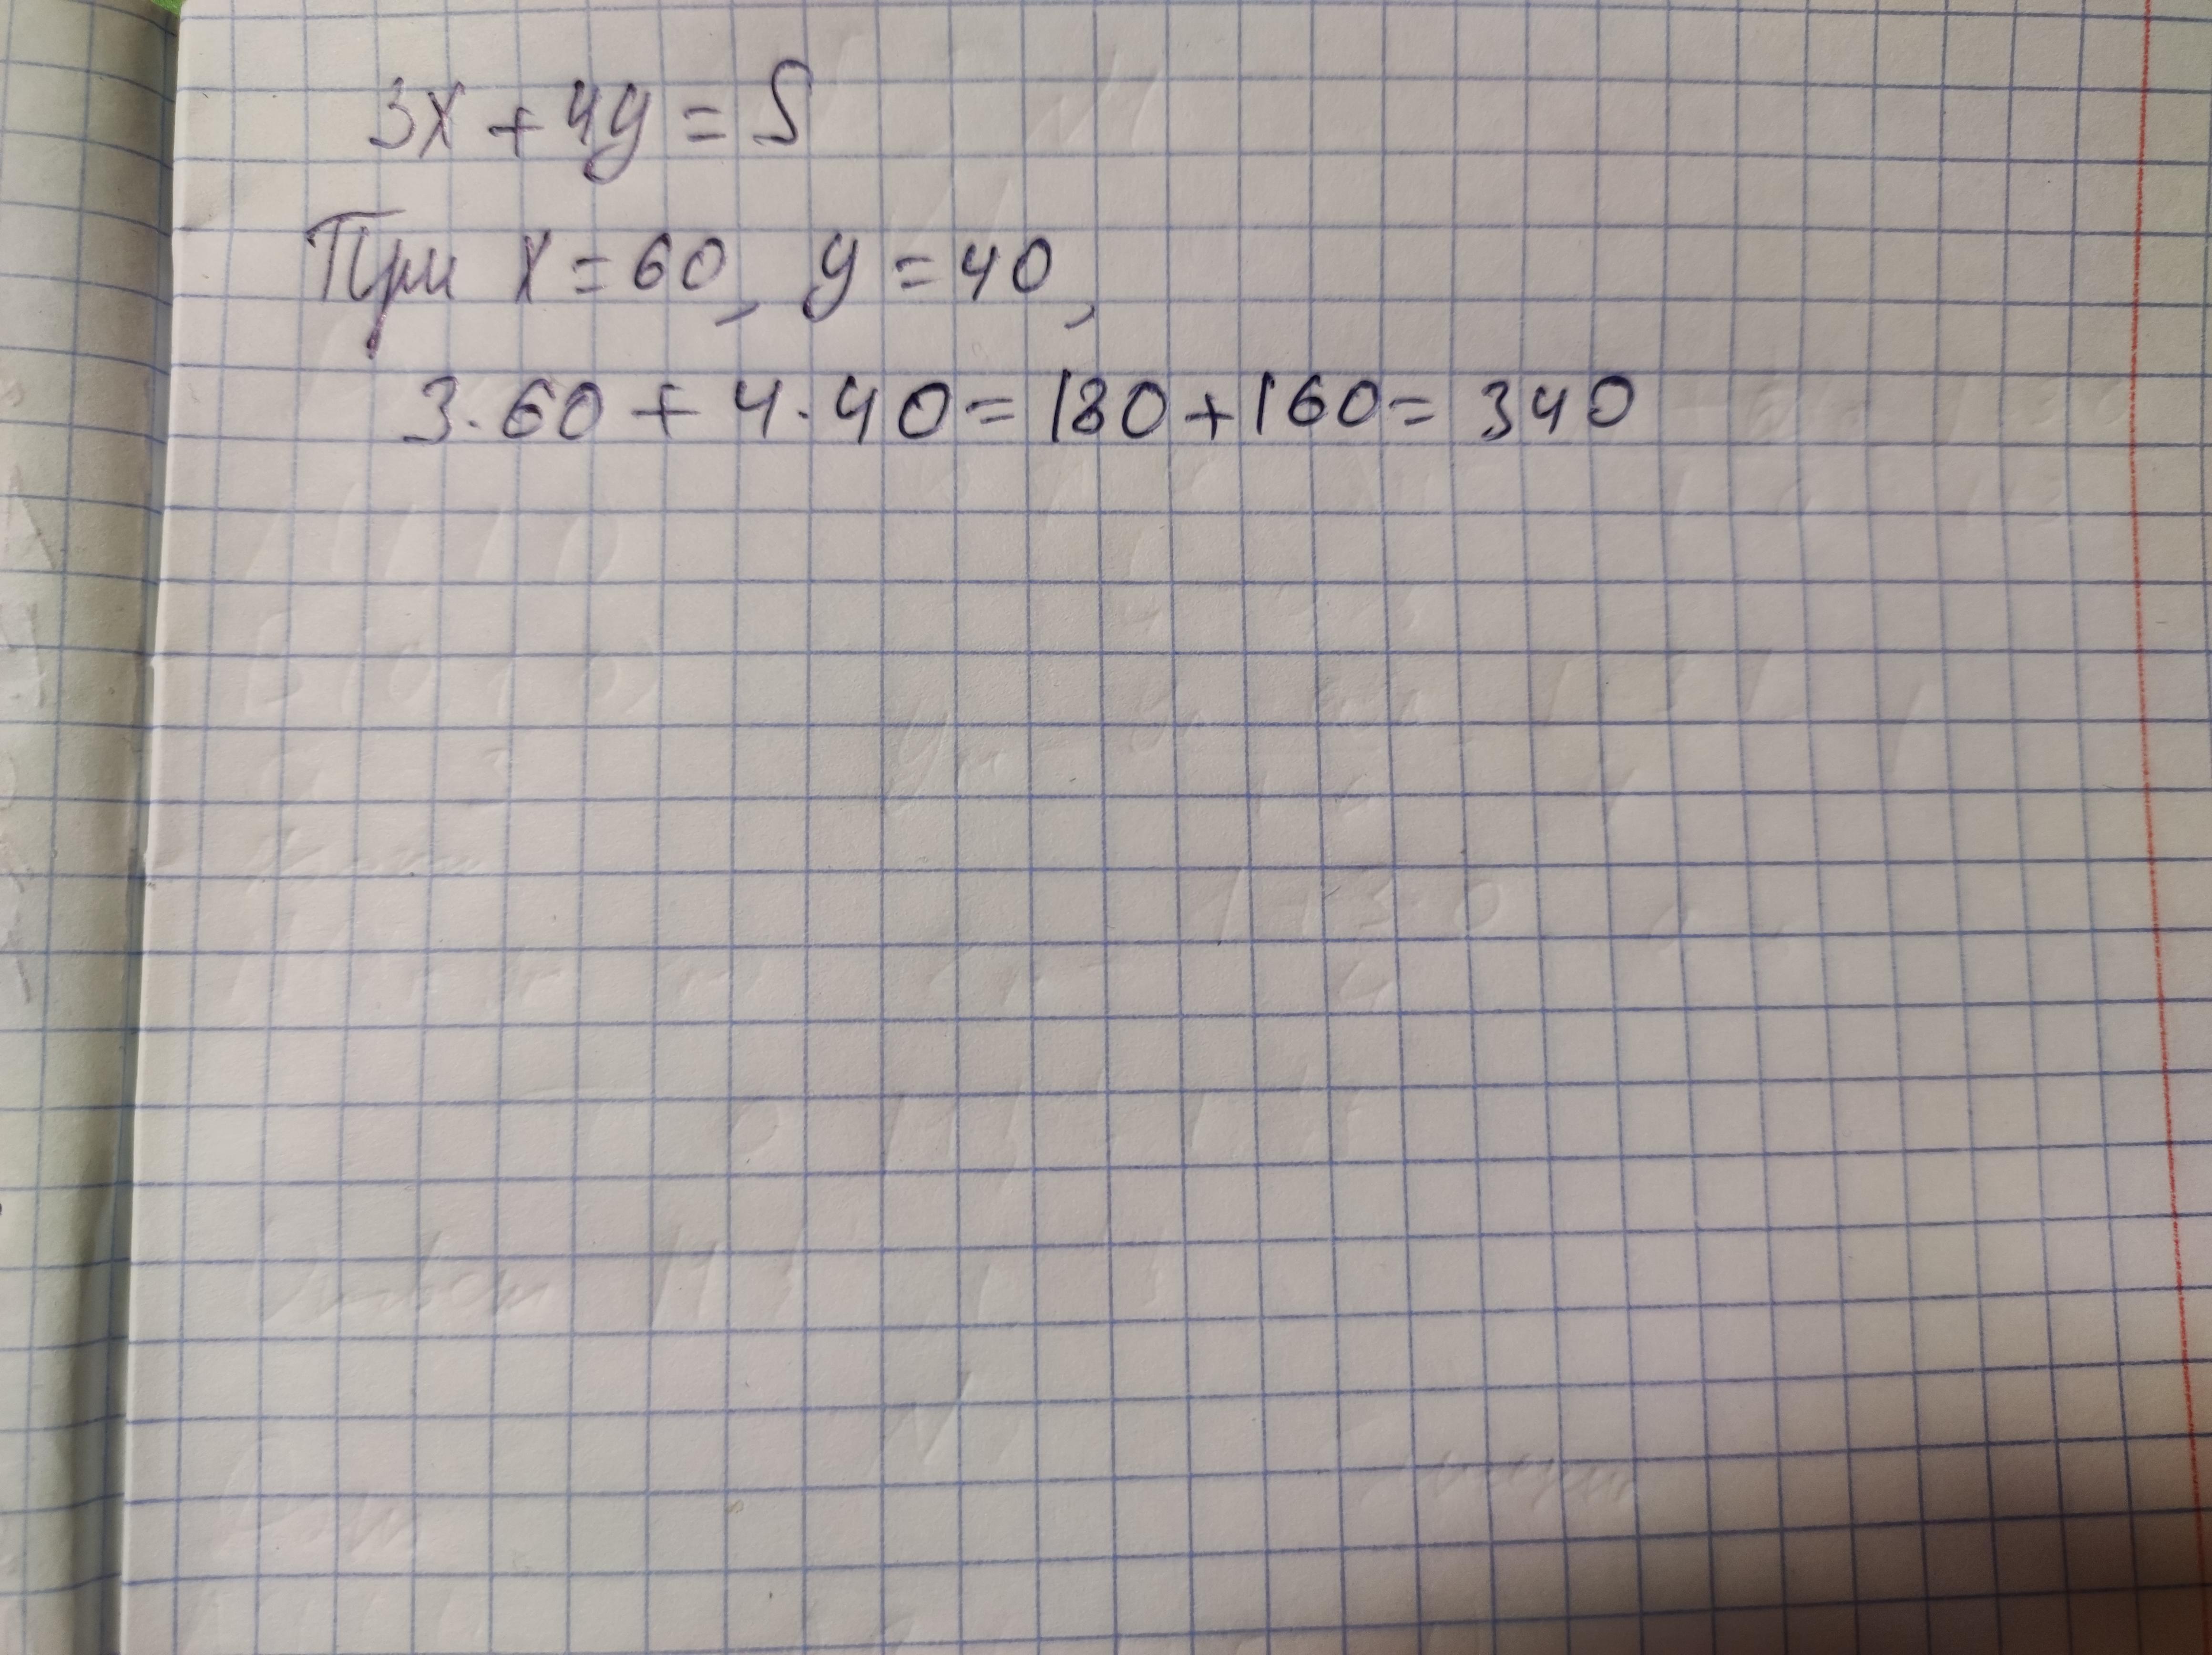 3x + 4y = S
При x = 60, y = 40,
3 · 60 + 4 · 40 = 180 + 160 = 340